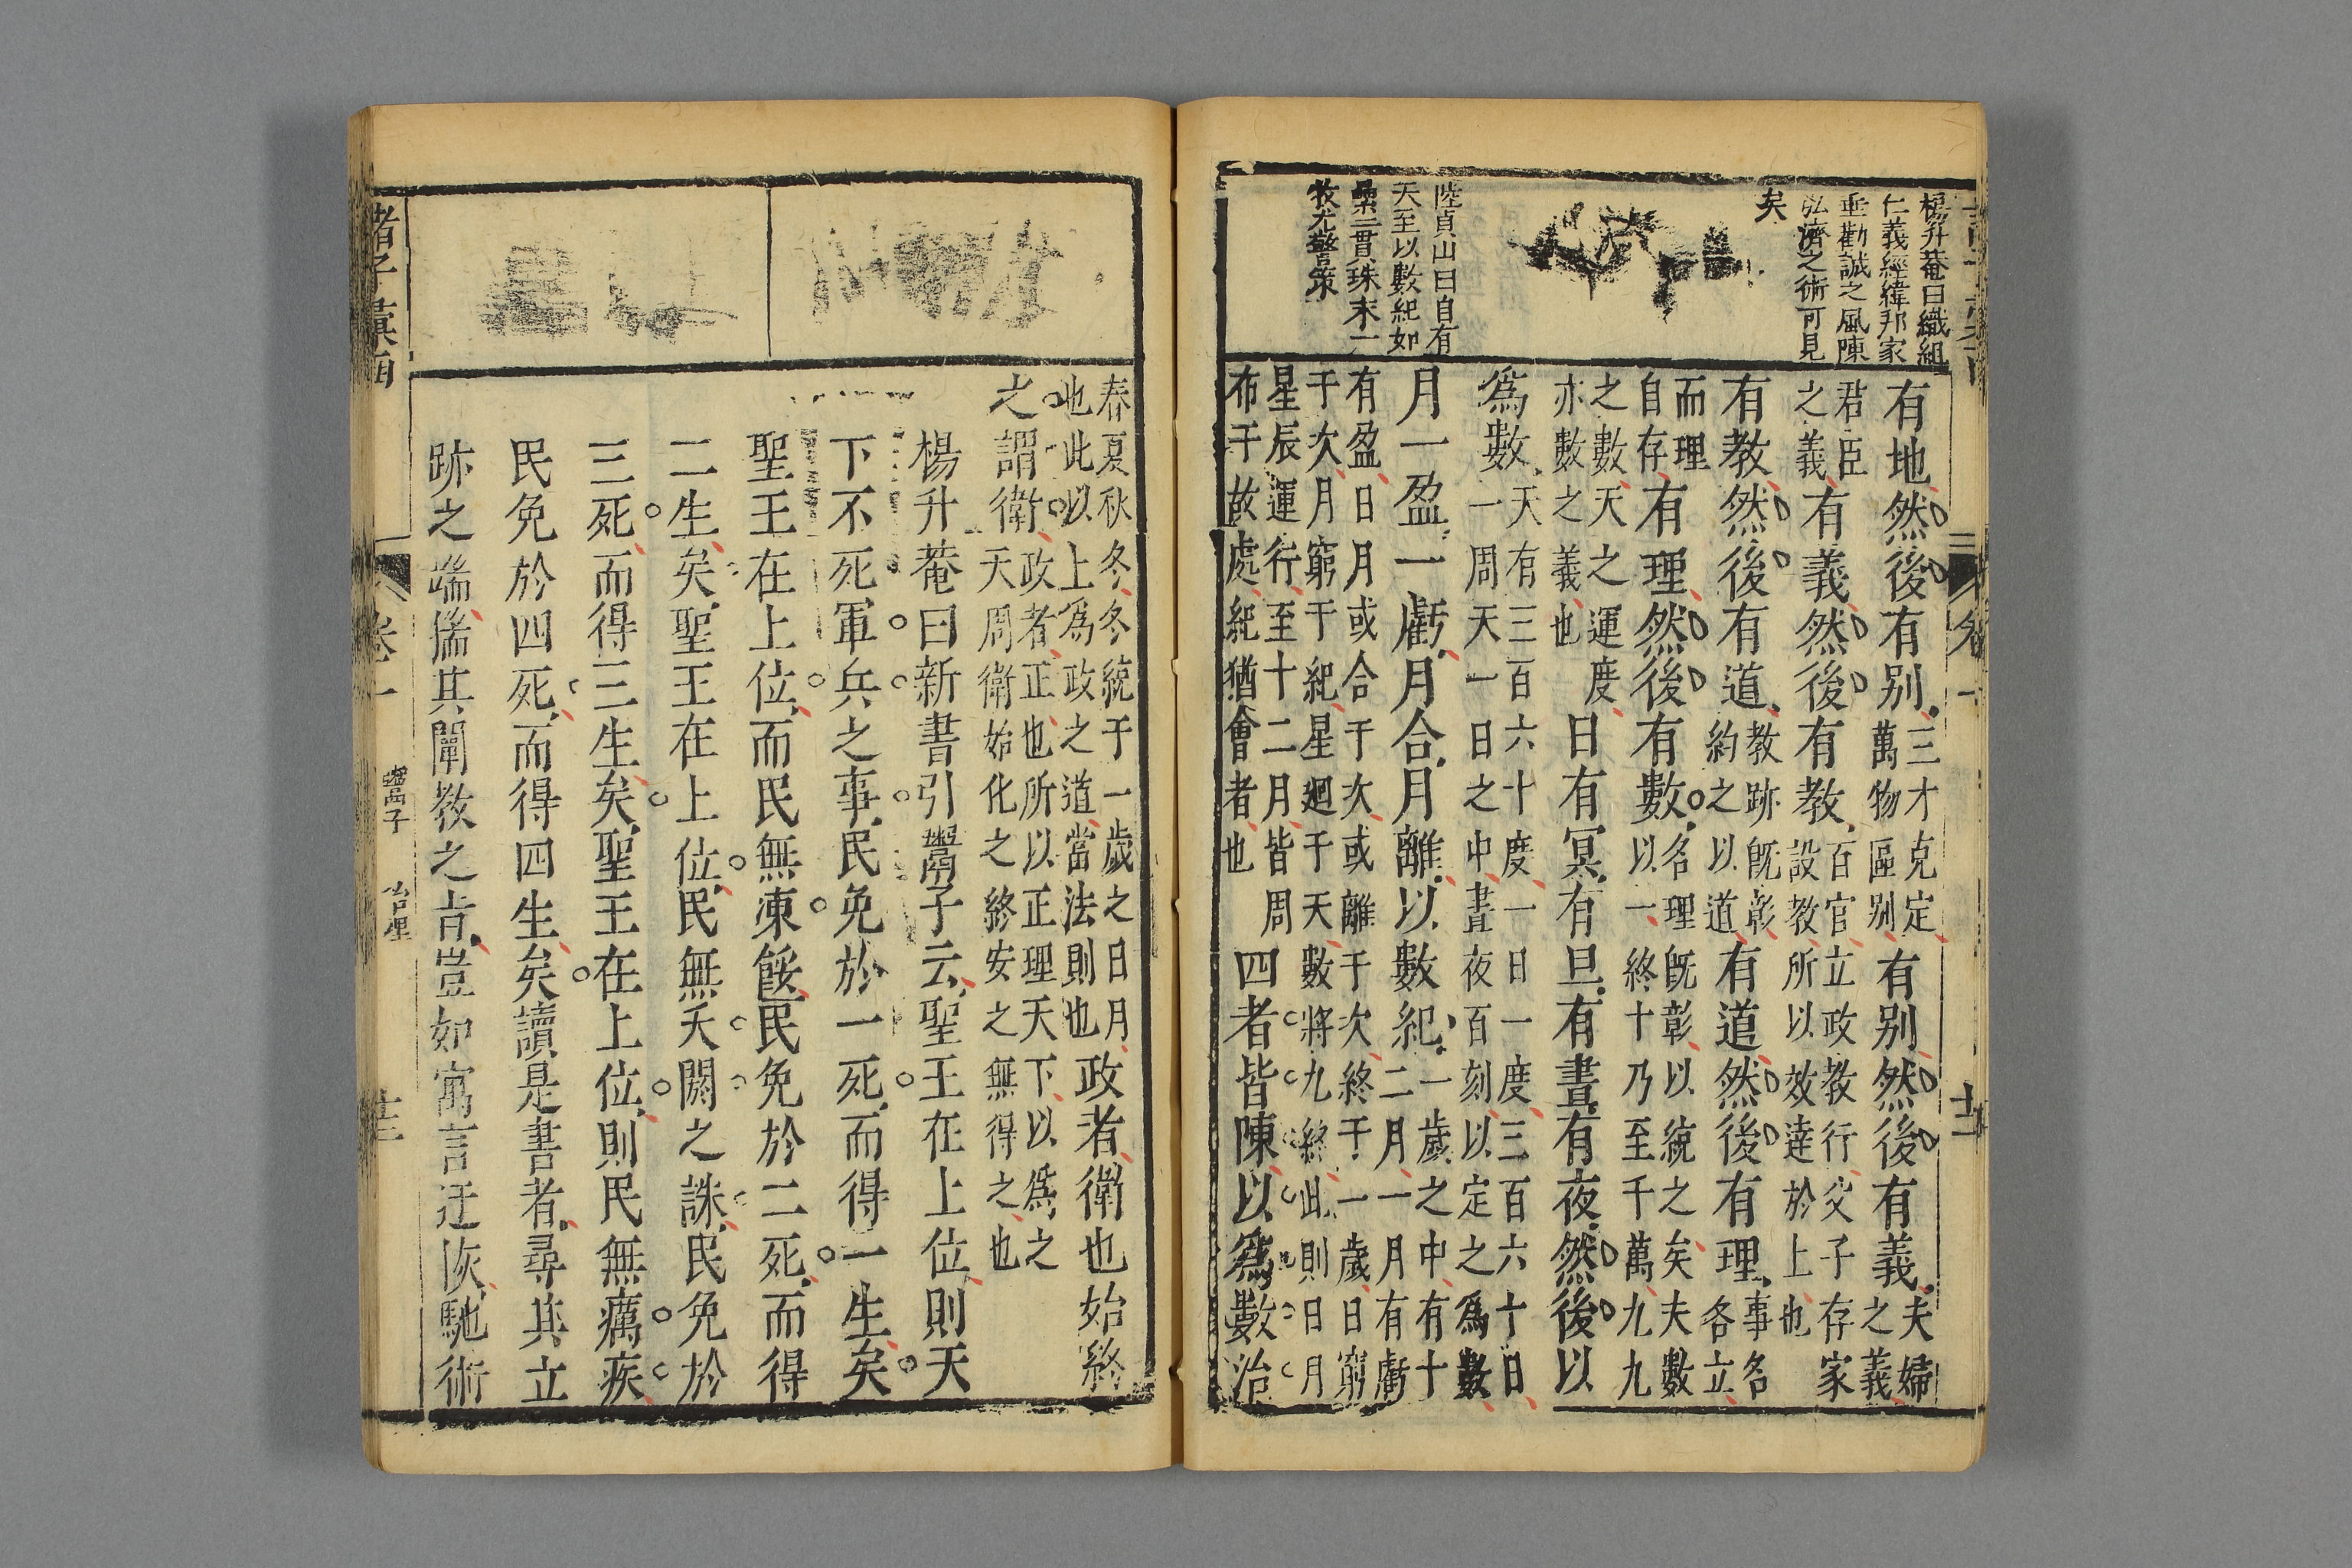 楊升菴曰織組
仁義經緯邦家
垂勸誡之風陳
弘濟之術可見
矣
陸貞山曰自有
天至以數紀如
纍纍貫珠末一
牧尤警策
有地然後有别三才克定萬物區别有别然後有義夫婦之義
君臣之義有義然後有教百官立政教行父子存家設教所以效達於上也
有教然後有道教跡既彰約之以道有道然後有理事各各立
而理自存有理然後有數名理既彰以統之矣夫數以一終十乃至千萬九九
之數天之運度亦數之義也日有冥有旦有晝有夜然後以
爲數天有三百六十度一日一度三百六十日一周天一日之中晝夜百刻以定之爲數
月一盈一虧月合月離以數紀一歲之中有十二月一月有虧
有盈日月或合于次或離于次終于一歲日窮于次月窮于紀星廻于天數將九終此則日月
星辰運行至十二月皆周布于故處紀猶會者也四者皆陳以爲數治
諸子彙函 卷一 鬻子 治理 十三
春夏秋冬冬統于一歲之日月也此以上爲政之道當法則也政者衛也始終
之謂衛政者正也所以正理天下以爲之天周衛始化之終安之無得之也
楊升菴曰新書引鬻子云聖王在上位則天
下不死軍兵之事民免於一死而得一生矣
聖王在上位而民無凍餒民免於二死而得
二生矣聖王在上位民無夭閼之誅民免於
三死而得三生矣聖王在上位則民無癘疾
民免於四死而得四生矣讀是書者尋其立
跡之端揣其闡教之肯豈如寓言迂恢馳術